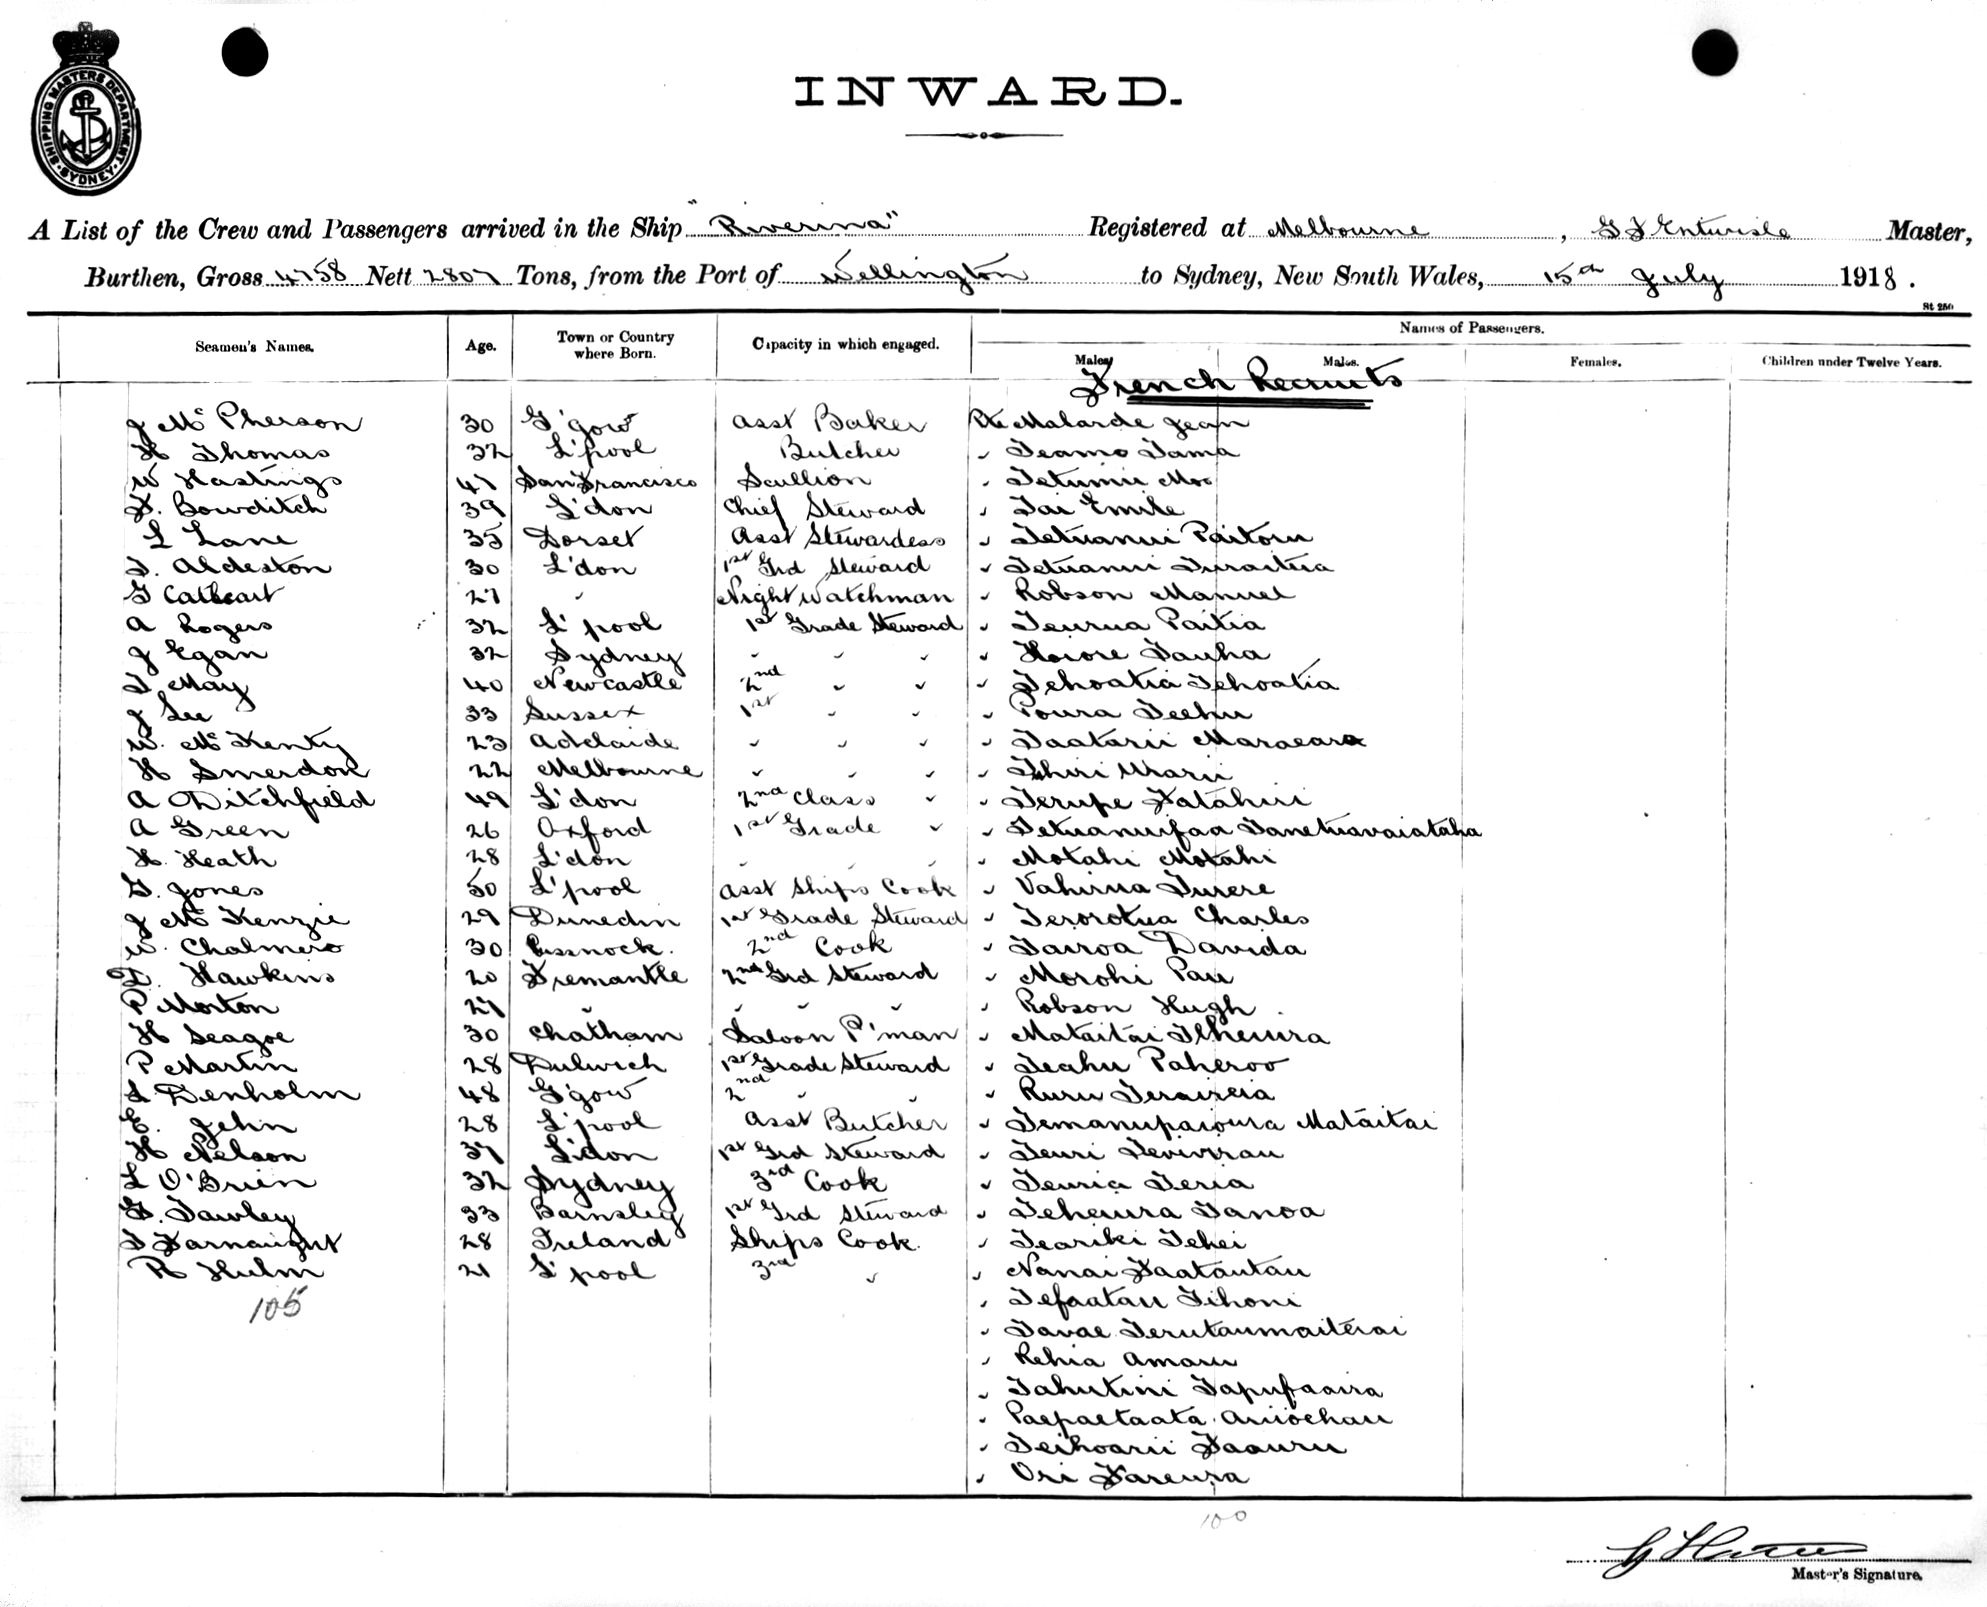 SHIPPING MASTERS DEPARTMENT
SYDNEY
INWARD.
A List of the Crew and Passengers arrived in the Ship "Riverina" Registered at Melbourne, G F Entwisle Master,
Burthen, Gross 4758 Nett 2807 Tons, from the Port of Wellington to Sydney, New South Wales, 15th July 1918.
St 250
Seamen's Names. Age. Town or Country where Born. Capacity in which engaged. Names of Passengers.
Males. Males. Females. Children under Twelve Years.
French Recruits
J McPherson 30 G'gow Asst Baker Pte Malarde Jean
H Thomas 32 L'pool Butcher " Teamo Tama
W Hastings 47 San Francisco Scullion " Tetumu Moo
F. Bowditch 39 L'don Chief Steward " Tai Emile
L Lane 35 Dorset Asst Stewardess " Tetuanui Paitoru
T. Aldeston 30 L'don 1st Grd Steward " Tetuanui Turaitera
G Cathcart 27 " Night Watchman " Robson Manuel
A Rogers 32 L'pool 1st Grade Steward " Teurua Paitia
J Egan 32 Sydney " " " " Hoiore Tauha
T May 40 Newcastle 2nd " " " Tehoatia Tehoatia
J Lee 33 Sussex 1st " " " Poura Teehu
W. McKenty 23 Adelaide " " " " Taatarii Maraeara
H Smerdon 22 Melbourne " " " "
A Ditchfield 49 L'don 2nd Class " " Terupe Fatahiri
A Green 26 Oxford 1st Grade " " Tetuanuifaa Tanetuavaiataha
H. Heath 28 L'don " " " " Motahi Motahi
G. Jones 50 L'pool Asst Ships Cook " Vahirua Turere
J McKenzie 29 Dunedin 1st Grade Steward " Terorotua Charles
W. Chalmers 30 Cessnock. 2nd Cook " Tairoa Davida
D. Hawkins 20 Fremantle 2nd Grd Steward " Morohi Pau
P Morton 27 " " " " " Robson Hugh
H Seagoe 30 Chatham Saloon P'man " Mataitai
P Martin 28 Dulwich 1st Grade Steward " Teahu Paheroo
L Denholm 48 G'gow 2nd " " " Ruru
E. Jehn 28 L'pool Asst Butcher " Temanupaioura Mataitai
H Nelson 37 L'don 1st Grd Steward " Teuri
L O'Brien 32 Sydney 3rd Cook " Teuria Teria
G. Tawley 33 Barnsley 1st Grd Steward " Teheiura Tanoa
T Farnaught 28 Ireland Ships Cook. " Teariki Tehei
R Hulm 21 L'pool 3rd " " Nanai Faatautau
105
" Tefaatau Tihoni
" Tavae Terutaumaiterai
" Rehia Amaru
" Tahutini Tapufaaira
" Paepaetaata
" Teihoarii Faauru
" Ori Fareura
100
Master's Signature.